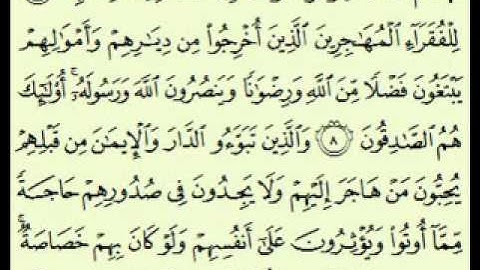 لِلْفُقَرَآءِ ٱلْمُهَٰجِرِينَ ٱلَّذِينَ أُخْرِجُوا۟ مِن دِيَٰرِهِمْ وَأَمْوَٰلِهِمْ
يَبْتَغُونَ فَضْلًا مِّنَ ٱللَّهِ وَرِضْوَٰنًا وَيَنصُرُونَ ٱللَّهَ وَرَسُولَهُۥٓ ۚ أُو۟لَٰٓئِكَ
هُمُ ٱلصَّٰدِقُونَ ٨ وَٱلَّذِينَ تَبَوَّءُو ٱلدَّارَ وَٱلْإِيمَٰنَ مِن قَبْلِهِمْ
يُحِبُّونَ مَنْ هَاجَرَ إِلَيْهِمْ وَلَا يَجِدُونَ فِى صُدُورِهِمْ حَاجَةً
مِّمَّآ أُوتُوا۟ وَيُؤْثِرُونَ عَلَىٰٓ أَنفُسِهِمْ وَلَوْ كَانَ بِهِمْ خَصَاصَةٌ ۚ